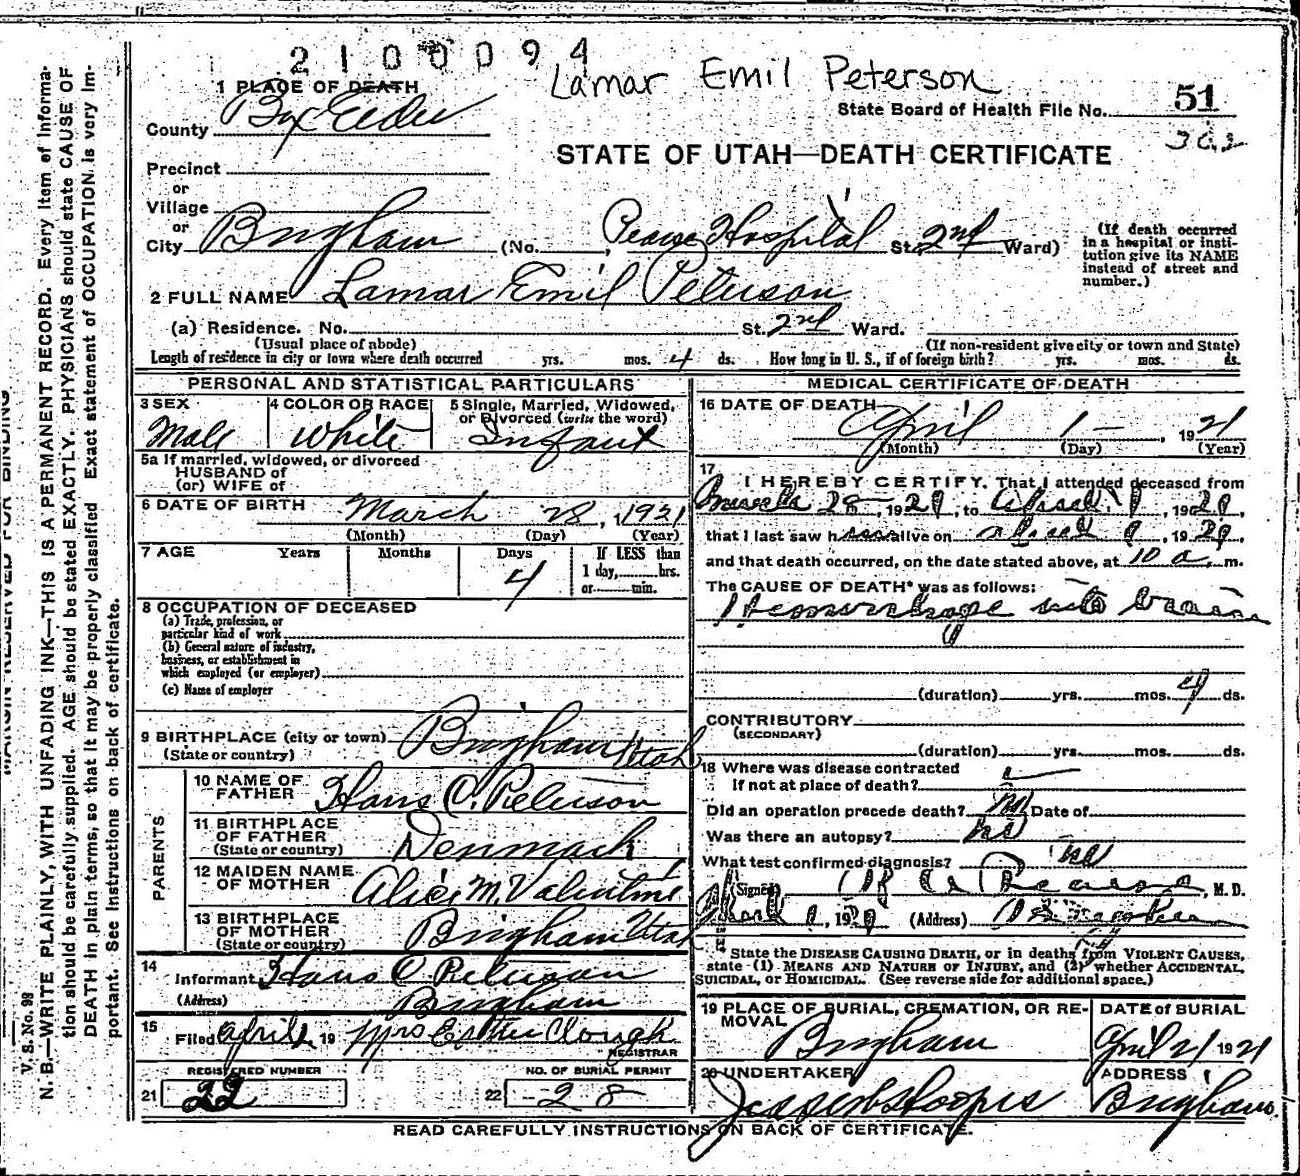 2100094
Lamar Emil Peterson
1 PLACE OF DEATH
State Board of Health File No. 51
County Box Elder
302
STATE OF UTAH—DEATH CERTIFICATE
Precinct
or
Village
or
City Brigham (No. Pearse Hospital St. 2nd Ward)
(If death occurred
in a hospital or insti-
tution give its NAME
instead of street and
number.)
2 FULL NAME Lamar Emil Peterson
(a) Residence. No. St. 2nd Ward.
(Usual place of abode) (If non-resident give city or town and State)
Length of residence in city or town where death occurred yrs. mos. 4 ds. How long in U. S., if of foreign birth? yrs. mos. ds.
PERSONAL AND STATISTICAL PARTICULARS
3 SEX
Male
4 COLOR OR RACE
White
5 Single, Married, Widowed,
or Divorced (write the word)
Infant
5a If married, widowed, or divorced
HUSBAND of
(or) WIFE of
6 DATE OF BIRTH March 28, 1921
(Month) (Day) (Year)
7 AGE Years Months Days If LESS than
4 1 day, hrs.
or min.
8 OCCUPATION OF DECEASED
(a) Trade, profession, or
particular kind of work
(b) General nature of industry,
business, or establishment in
which employed (or employer)
(c) Name of employer
9 BIRTHPLACE (city or town) Brigham Utah
(State or country)
PARENTS
10 NAME OF
FATHER Hans C. Peterson
11 BIRTHPLACE
OF FATHER
(State or country) Denmark
12 MAIDEN NAME
OF MOTHER Alice M. Valentine
13 BIRTHPLACE
OF MOTHER
(State or country) Brigham Utah
14
Informant Hans C Peterson
(Address) Brigham
15
Filed April 2, 19 Mrs Esther Clough
REGISTRAR
REGISTERED NUMBER
21 22
NO. OF BURIAL PERMIT
22 -28
MEDICAL CERTIFICATE OF DEATH
16 DATE OF DEATH
April 1 — , 1921
(Month) (Day) (Year)
17
I HEREBY CERTIFY, That I attended deceased from
March 28, 1921, to April 1, 1921,
that I last saw h alive on April 1, 1921,
and that death occurred, on the date stated above, at 10 a. m.
The CAUSE OF DEATH* was as follows:
Hemorrhage into brain
(duration) yrs. mos. 4 ds.
CONTRIBUTORY
(SECONDARY)
(duration) yrs. mos. ds.
18 Where was disease contracted
If not at place of death?
Did an operation precede death? no Date of
Was there an autopsy? no
What test confirmed diagnosis?
(Signed) R A Pearse, M. D.
April 1, 1921 (Address) Brigham
State the DISEASE CAUSING DEATH, or in deaths from VIOLENT CAUSES,
state (1) MEANS AND NATURE OF INJURY, and (2) whether ACCIDENTAL,
SUICIDAL, or HOMICIDAL. (See reverse side for additional space.)
19 PLACE OF BURIAL, CREMATION, OR RE-
MOVAL
Brigham
DATE of BURIAL
April 2 / 1921
20 UNDERTAKER
ADDRESS
Brigham
READ CAREFULLY INSTRUCTIONS ON BACK OF CERTIFICATE.
MARGIN RESERVED FOR BINDING
V. S. No. 98
N. B.—WRITE PLAINLY, WITH UNFADING INK—THIS IS A PERMANENT RECORD. Every item of informa-
tion should be carefully supplied. AGE should be stated EXACTLY. PHYSICIANS should state CAUSE OF
DEATH in plain terms, so that it may be properly classified. Exact statement of OCCUPATION is very im-
portant. See instructions on back of certificate.